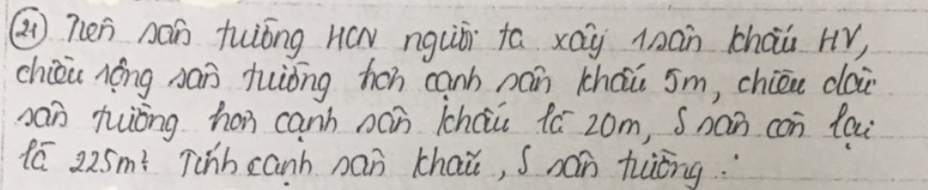 21) Trên sân trường HCN người ta xây 1 sân khấu HV,
chiều rộng sân trường hơn cạnh sân khấu 5m, chiều dài
sân trường hơn cạnh sân khấu là 20m, S sân còn lại
là 225m². Tính cạnh sân khấu, S sân trường.